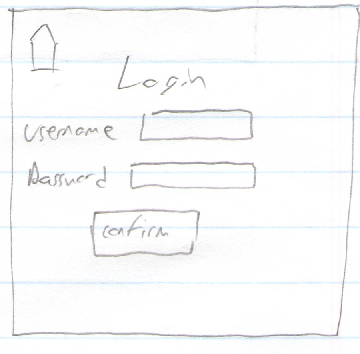 Login
Username
Password
Confirm